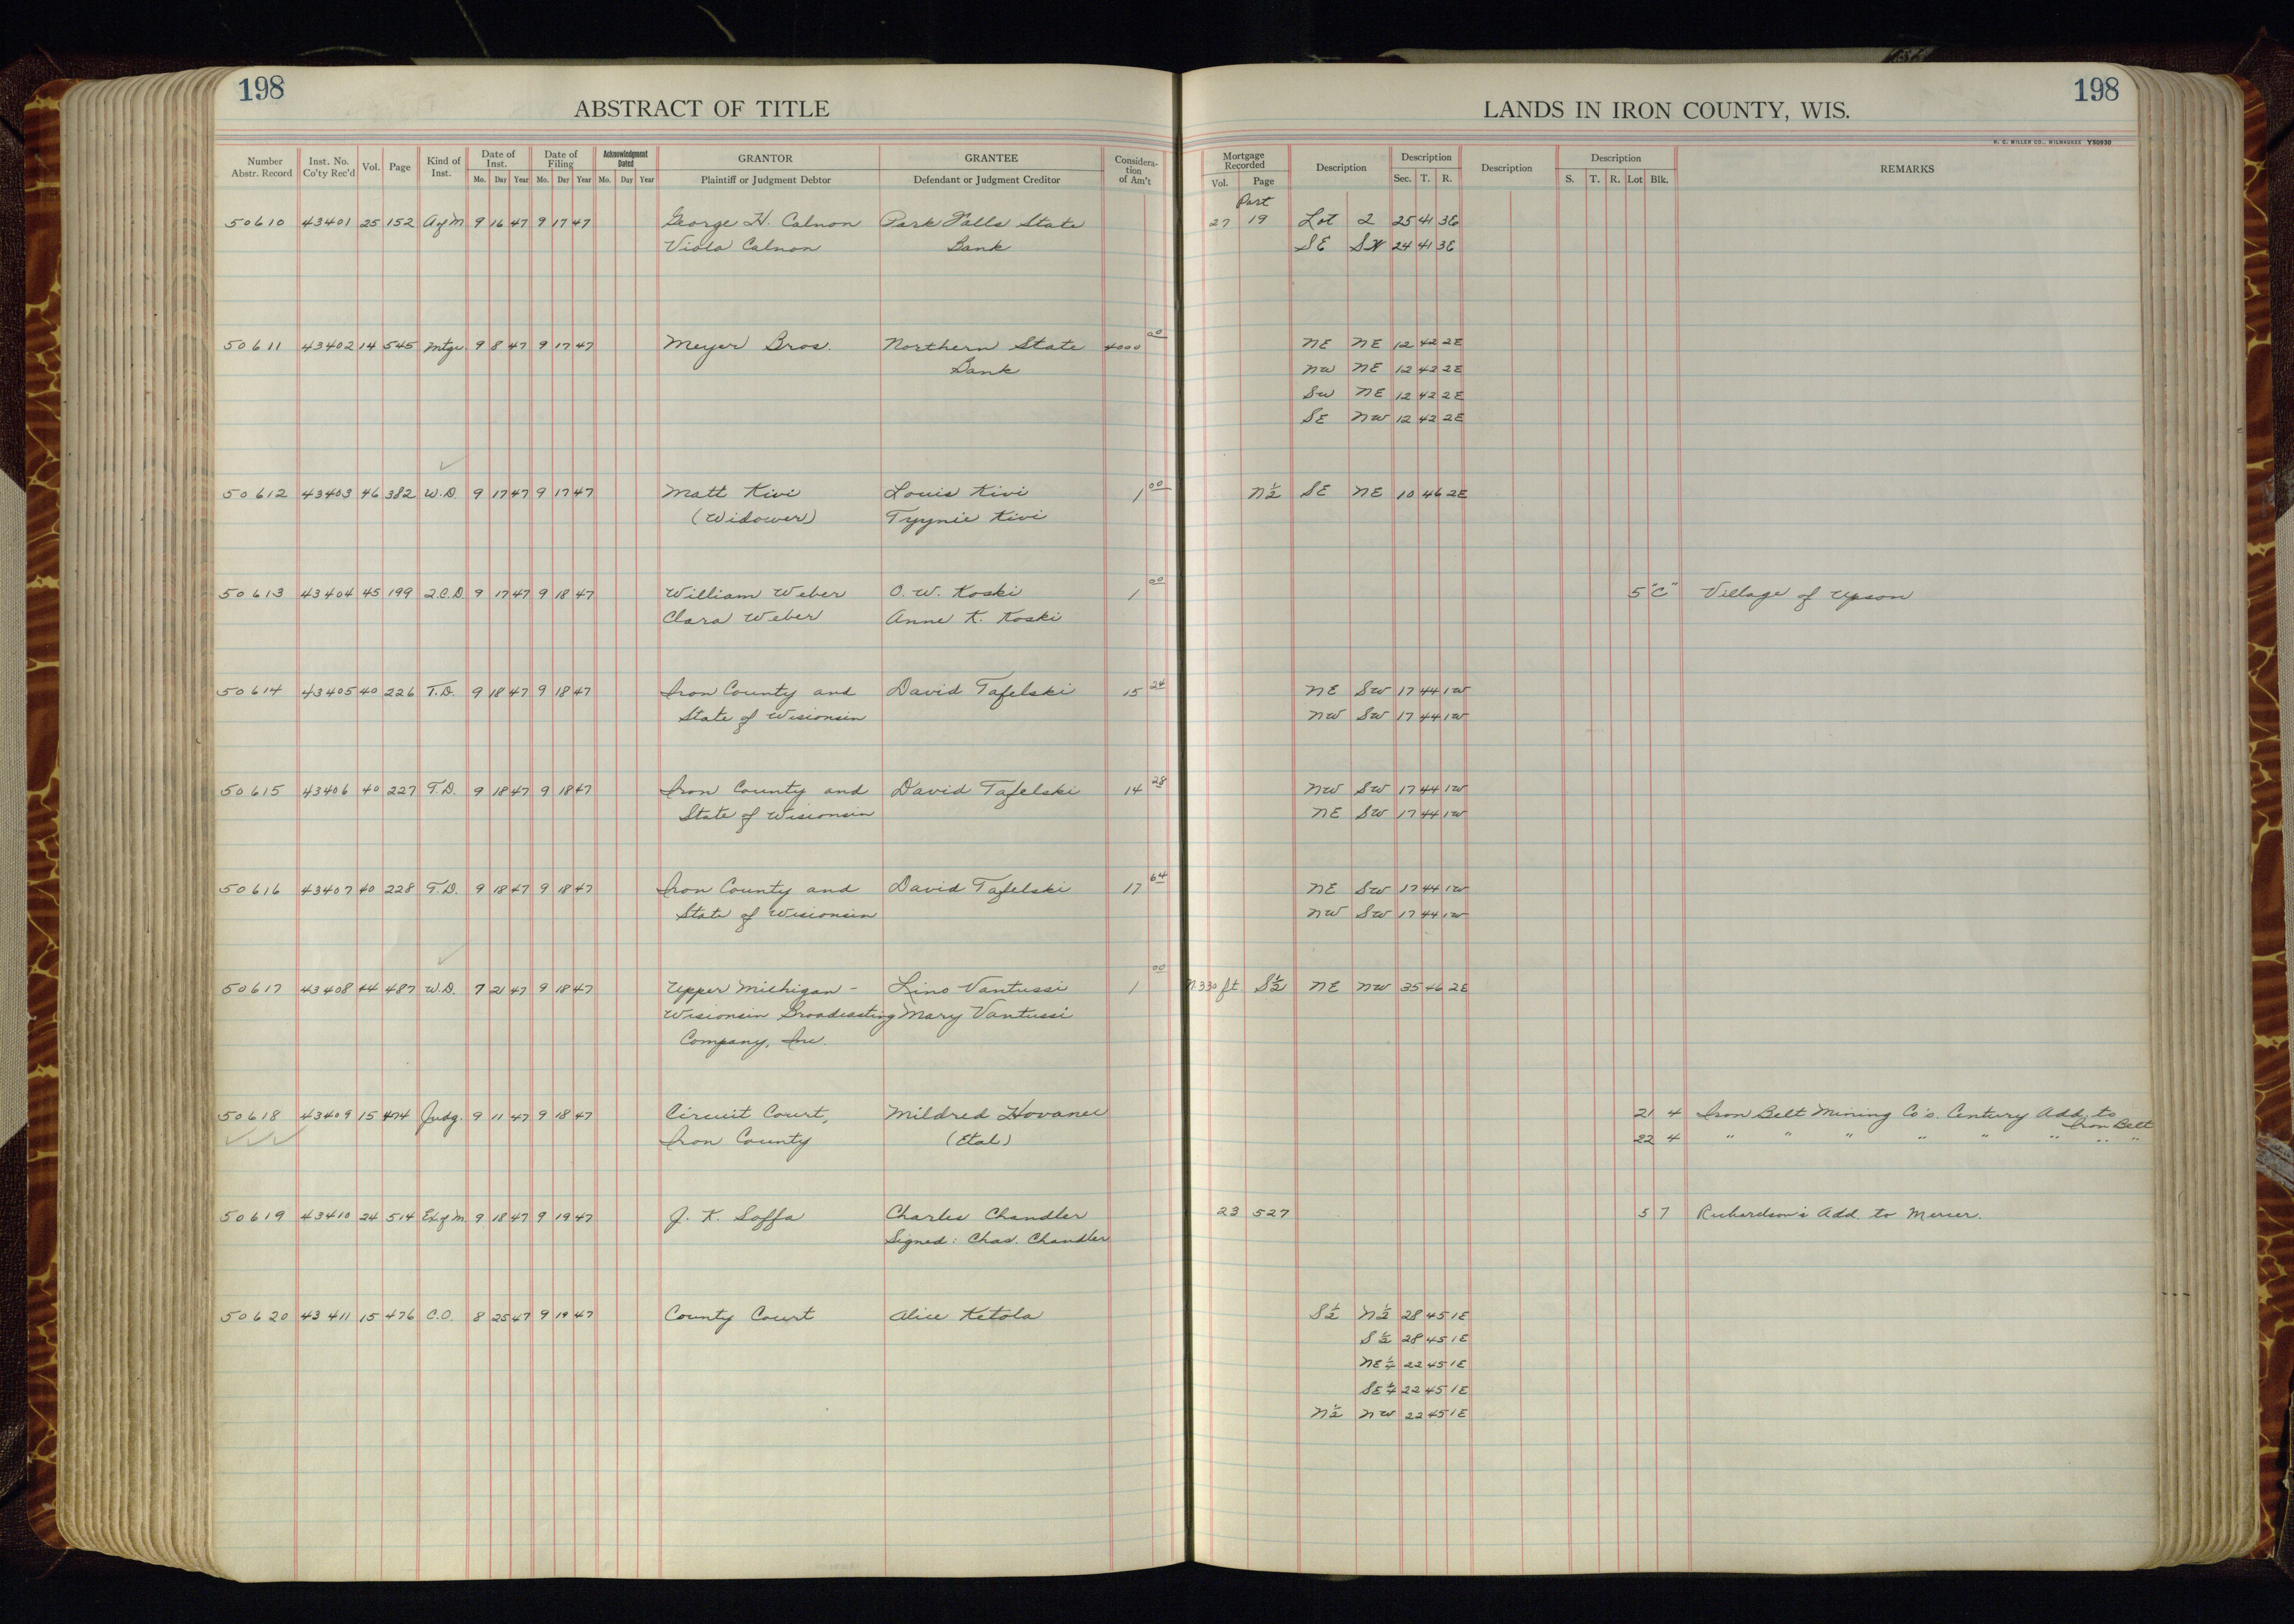 198
ABSTRACT OF TITLE
LANDS IN IRON COUNTY, WIS.
198
H. C. MILLER CO., MILWAUKEE Y50930
Number Abstr. Record Inst. No. Co'ty Rec'd Vol. Page Kind of Inst. Date of Inst. Mo. Day Year Date of Filing Mo. Day Year Acknowledgment Dated Mo. Day Year GRANTOR Plaintiff or Judgment Debtor GRANTEE Defendant or Judgment Creditor Considera- tion of Am't Mortgage Recorded Vol. Page Description Description Sec. T. R. Description Description S. T. R. Lot Blk. REMARKS
Part
50610 43401 25 152 A of M 9 16 47 9 17 47 George H. Calnon Park Falls State 27 19 Lot 2 25 41 3E
Viola Calnon Bank SE SW 24 41 3E
50611 43402 14 545 Mtge. 9 8 47 9 17 47 Meyer Bros. Northern State 4000 00 NE NE 12 42 2E
Bank NW NE 12 42 2E
SW NE 12 42 2E
SE NW 12 42 2E
50612 43403 46 382 W.D. 9 17 47 9 17 47 Matt Kivi Louis Kivi 1 00 N½ SE NE 10 46 2E
(Widower) Tyynie Kivi
50613 43404 45 199 Q.C.D 9 17 47 9 18 47 William Weber O. W. Koski 1 00 5 "C" Village of Upson
Clara Weber Anne K. Koski
50614 43405 40 226 T.D. 9 18 47 9 18 47 Iron County and David Tafelski 15 24 NE SW 17 44 1W
State of Wisconsin NW SW 17 44 1W
50615 43406 40 227 T.D. 9 18 47 9 18 47 Iron County and David Tafelski 14 28 NW SW 17 44 1W
State of Wisconsin NE SW 17 44 1W
50616 43407 40 228 T.D. 9 18 47 9 18 47 Iron County and David Tafelski 17 64 NE SW 17 44 1W
State of Wisconsin NW SW 17 44 1W
50617 43408 44 487 W.D. 7 21 47 9 18 47 Upper Michigan - Lino Vantussi 1 00 N.330 ft. S½ NE NW 35 46 2E
Wisconsin Broadcasting Mary Vantussi
Company, Inc.
50618 43409 15 474 Judg. 9 11 47 9 18 47 Circuit Court, Mildred Hovanec 21 4 Iron Belt Mining Co's. Century Add. to Iron Belt
Iron County (Etal) 22 4 " " " " " " " "
50619 43410 24 514 Ex of M. 9 18 47 9 19 47 J. K. Soffa Charles Chandler 23 527 5 7 Richardson's Add. to Mercer.
Signed: Chas. Chandler
50620 43411 15 476 C.O. 8 25 47 9 19 47 County Court Alice Ketola S½ N½ 28 45 1E
S½ 28 45 1E
NE¼ 22 45 1E
SE¼ 22 45 1E
N½ NW 22 45 1E